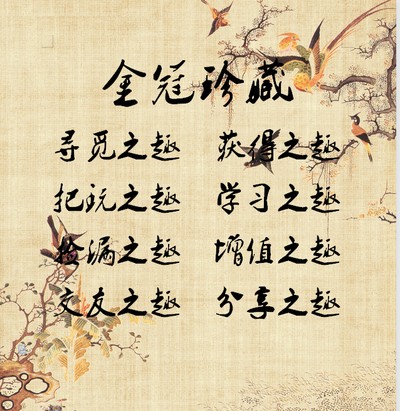 金冠珍藏
寻觅之趣 获得之趣
把玩之趣 学习之趣
捡漏之趣 增值之趣
交友之趣 分享之趣